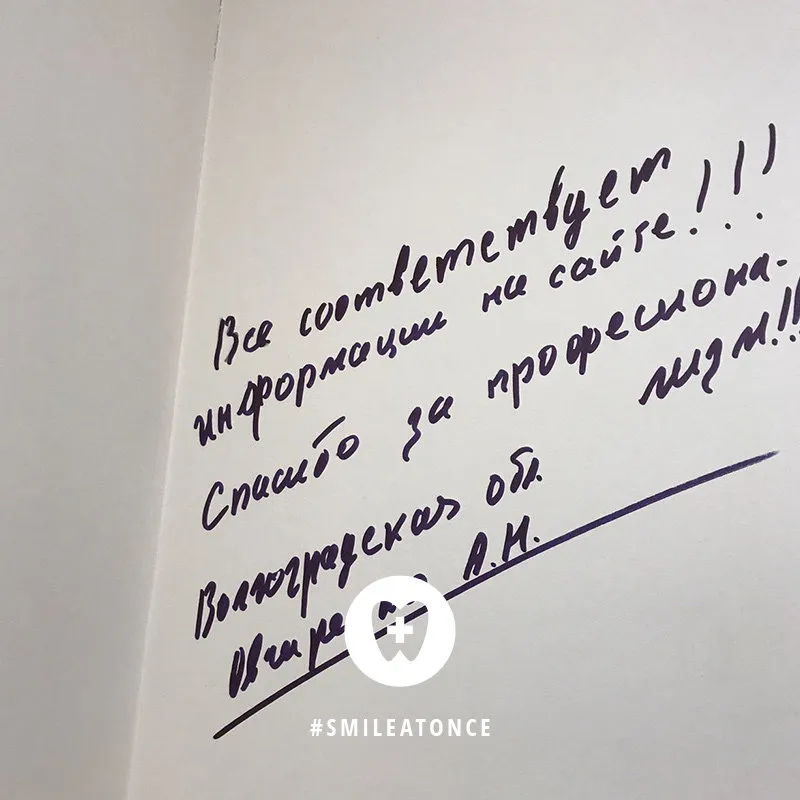 Все соответствует
информации на сайте!!!
Спасибо за професиона-
лизм!!!
Волгоградская обл.
А.Н.
#SMILEATONCE